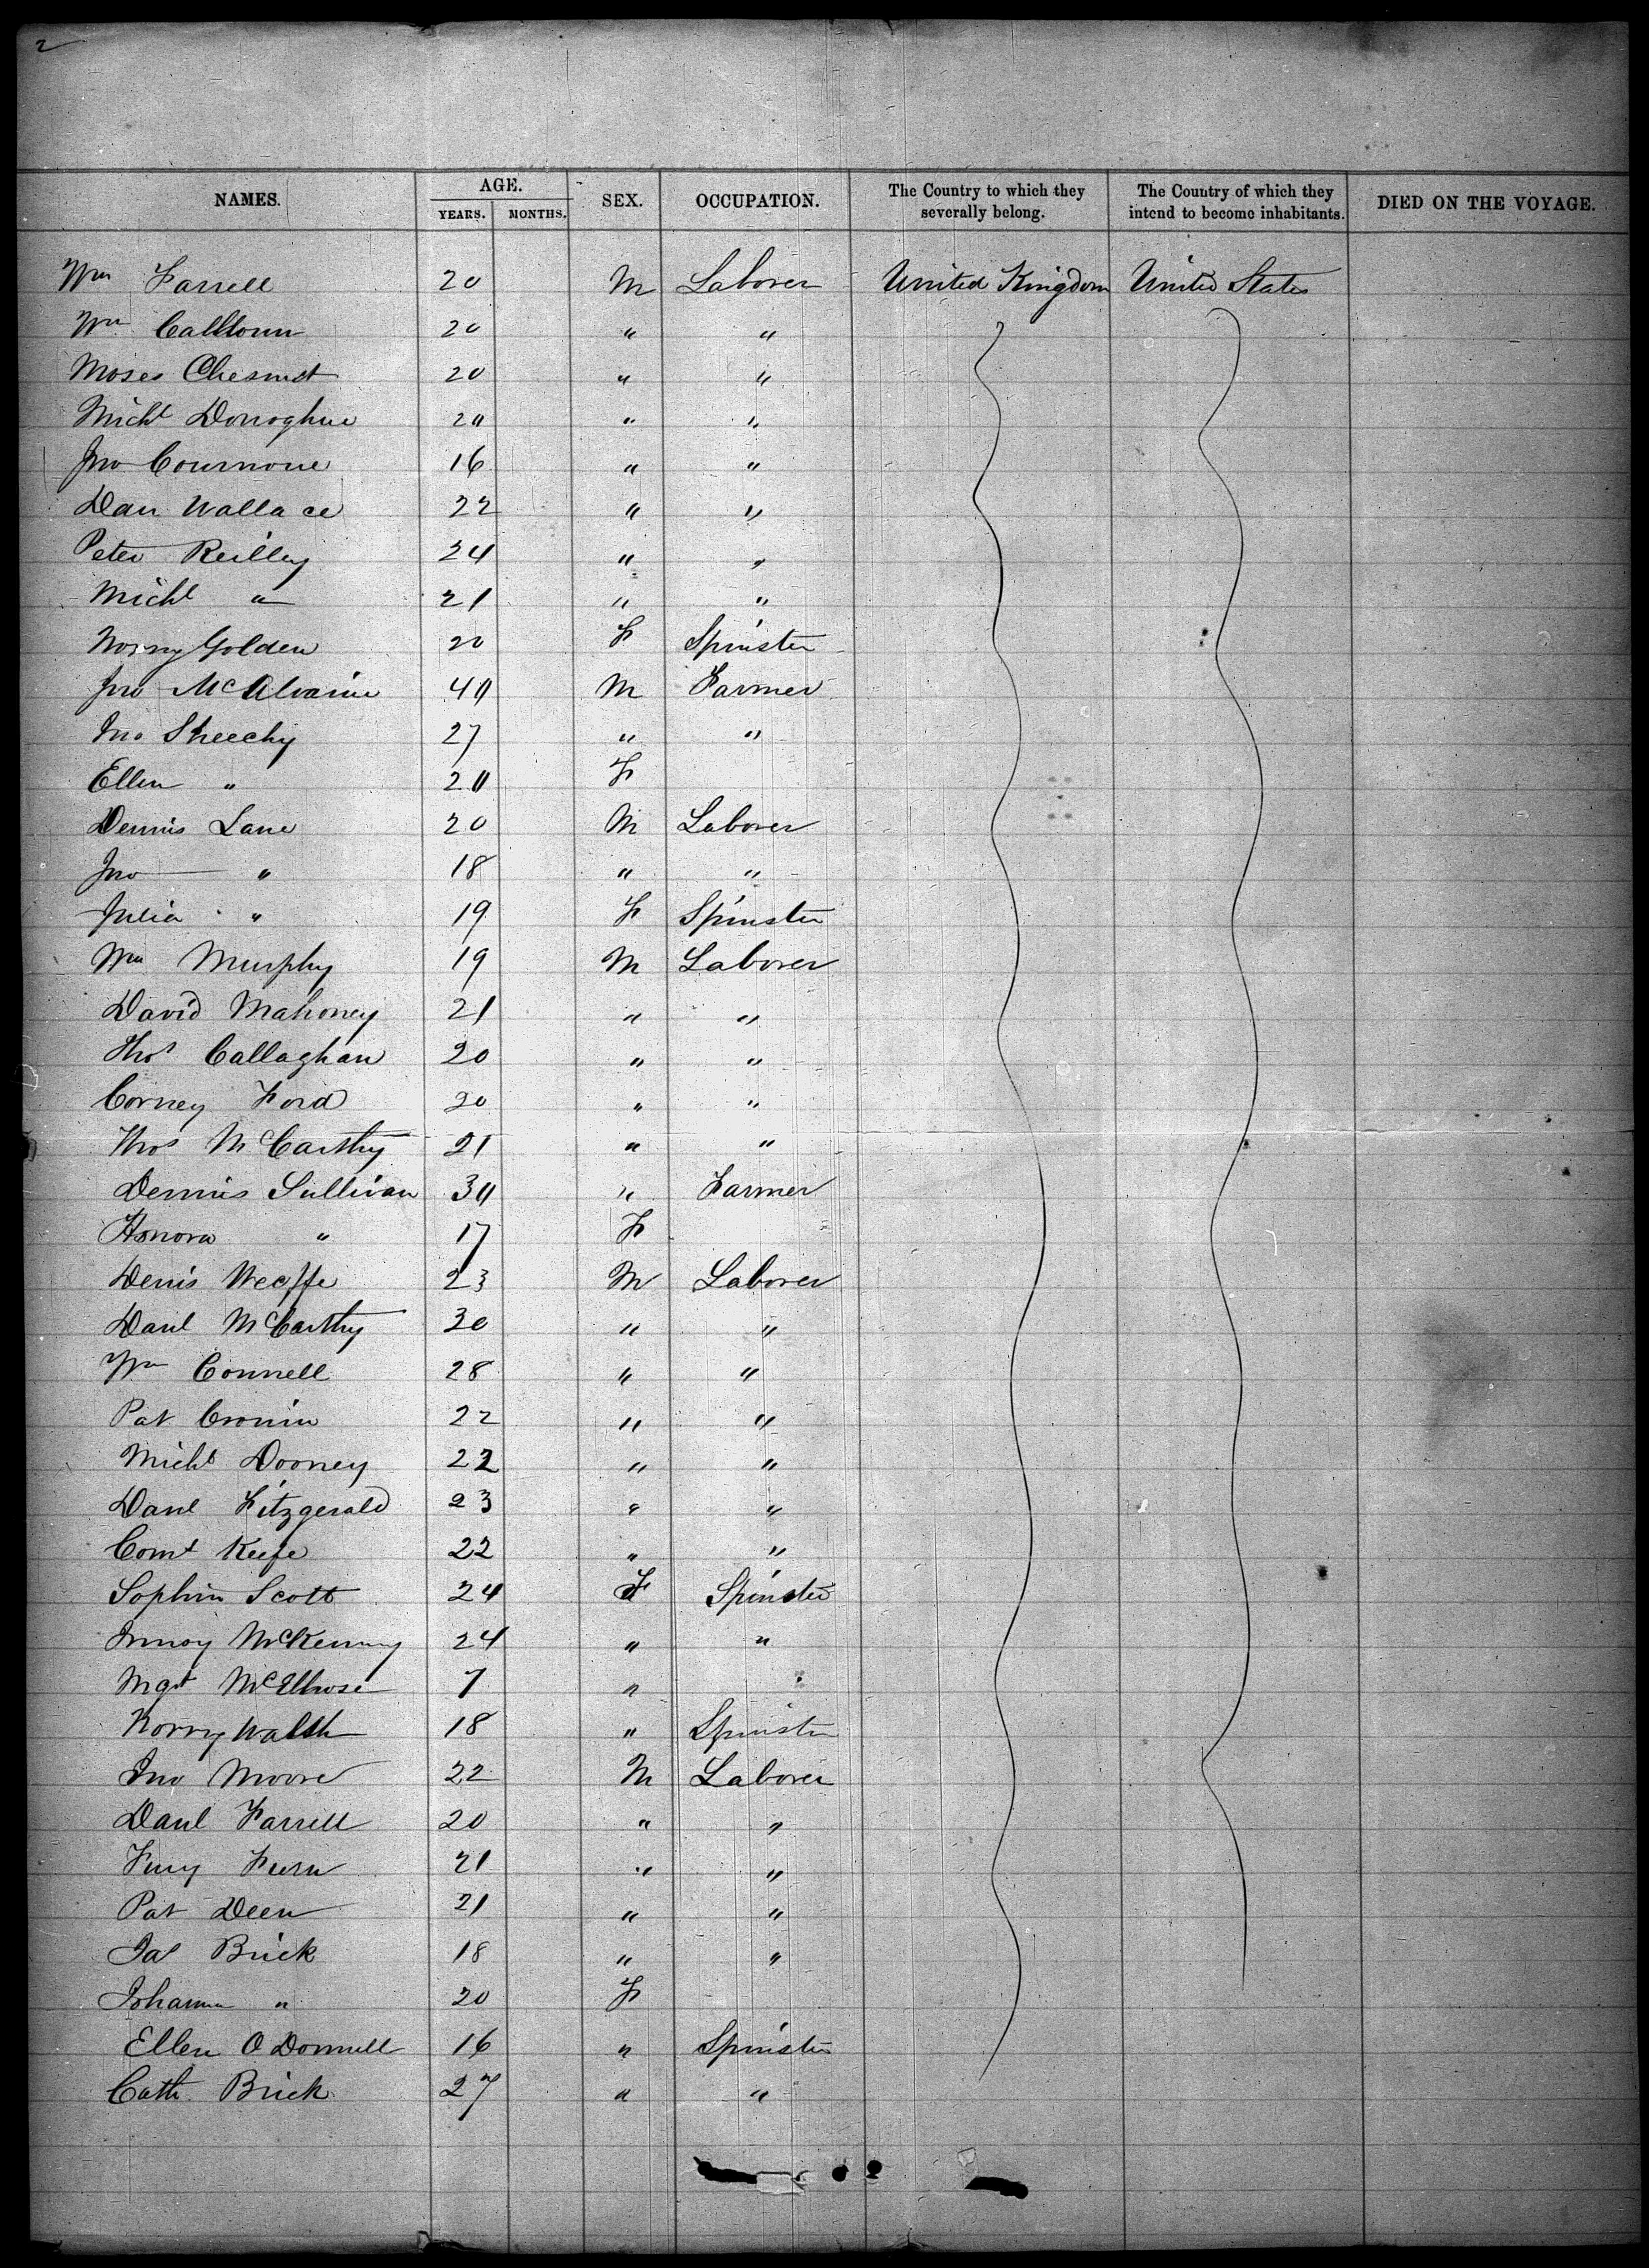 2
NAMES. AGE. SEX. OCCUPATION. The Country to which they severally belong. The Country of which they intend to become inhabitants. DIED ON THE VOYAGE.
YEARS. MONTHS.
Wm Farrell 20 M Laborer United Kingdom United States
Wm Calhoun 20 " "
Moses Chesnut 20 " "
Michl Donoghue 20 " "
Jno 16 " "
Dan Wallace 22 " "
Peter Reilley 24 " "
Michl " 21 " "
Norry Golden 20 F Spinster
Jno McAlvaine 40 M Farmer
Jno Sheechy 27 " "
Ellen " 20 F
Dennis Lane 20 M Laborer
Jno " 18 " "
Julia " 19 F Spinster
Wm Murphy 19 M Laborer
David Mahoney 21 " "
Thos Callaghan 20 " "
Corney Ford 20 " "
Thos McCarthy 21 " "
Dennis Sullivan 30 " Farmer
Honora " 17 F
Denis 23 M Laborer
Danl McCarthy 30 " "
Wm Connell 28 " "
Pat Cronin 22 " "
Michl Dooney 22 " "
Danl Fitzgerald 23 " "
Keefe 22 " "
Sophia Scott 24 F Spinster
24 " "
Mgt 7 "
Norry Walsh 18 " Spinster
Jno Moore 22 M Laborer
Danl Farrell 20 " "
21 " "
Pat Deen 21 " "
Jas Brick 18 " "
Johanna " 20 F
Ellen O Donnell 16 " Spinster
Cath Brick 27 " "